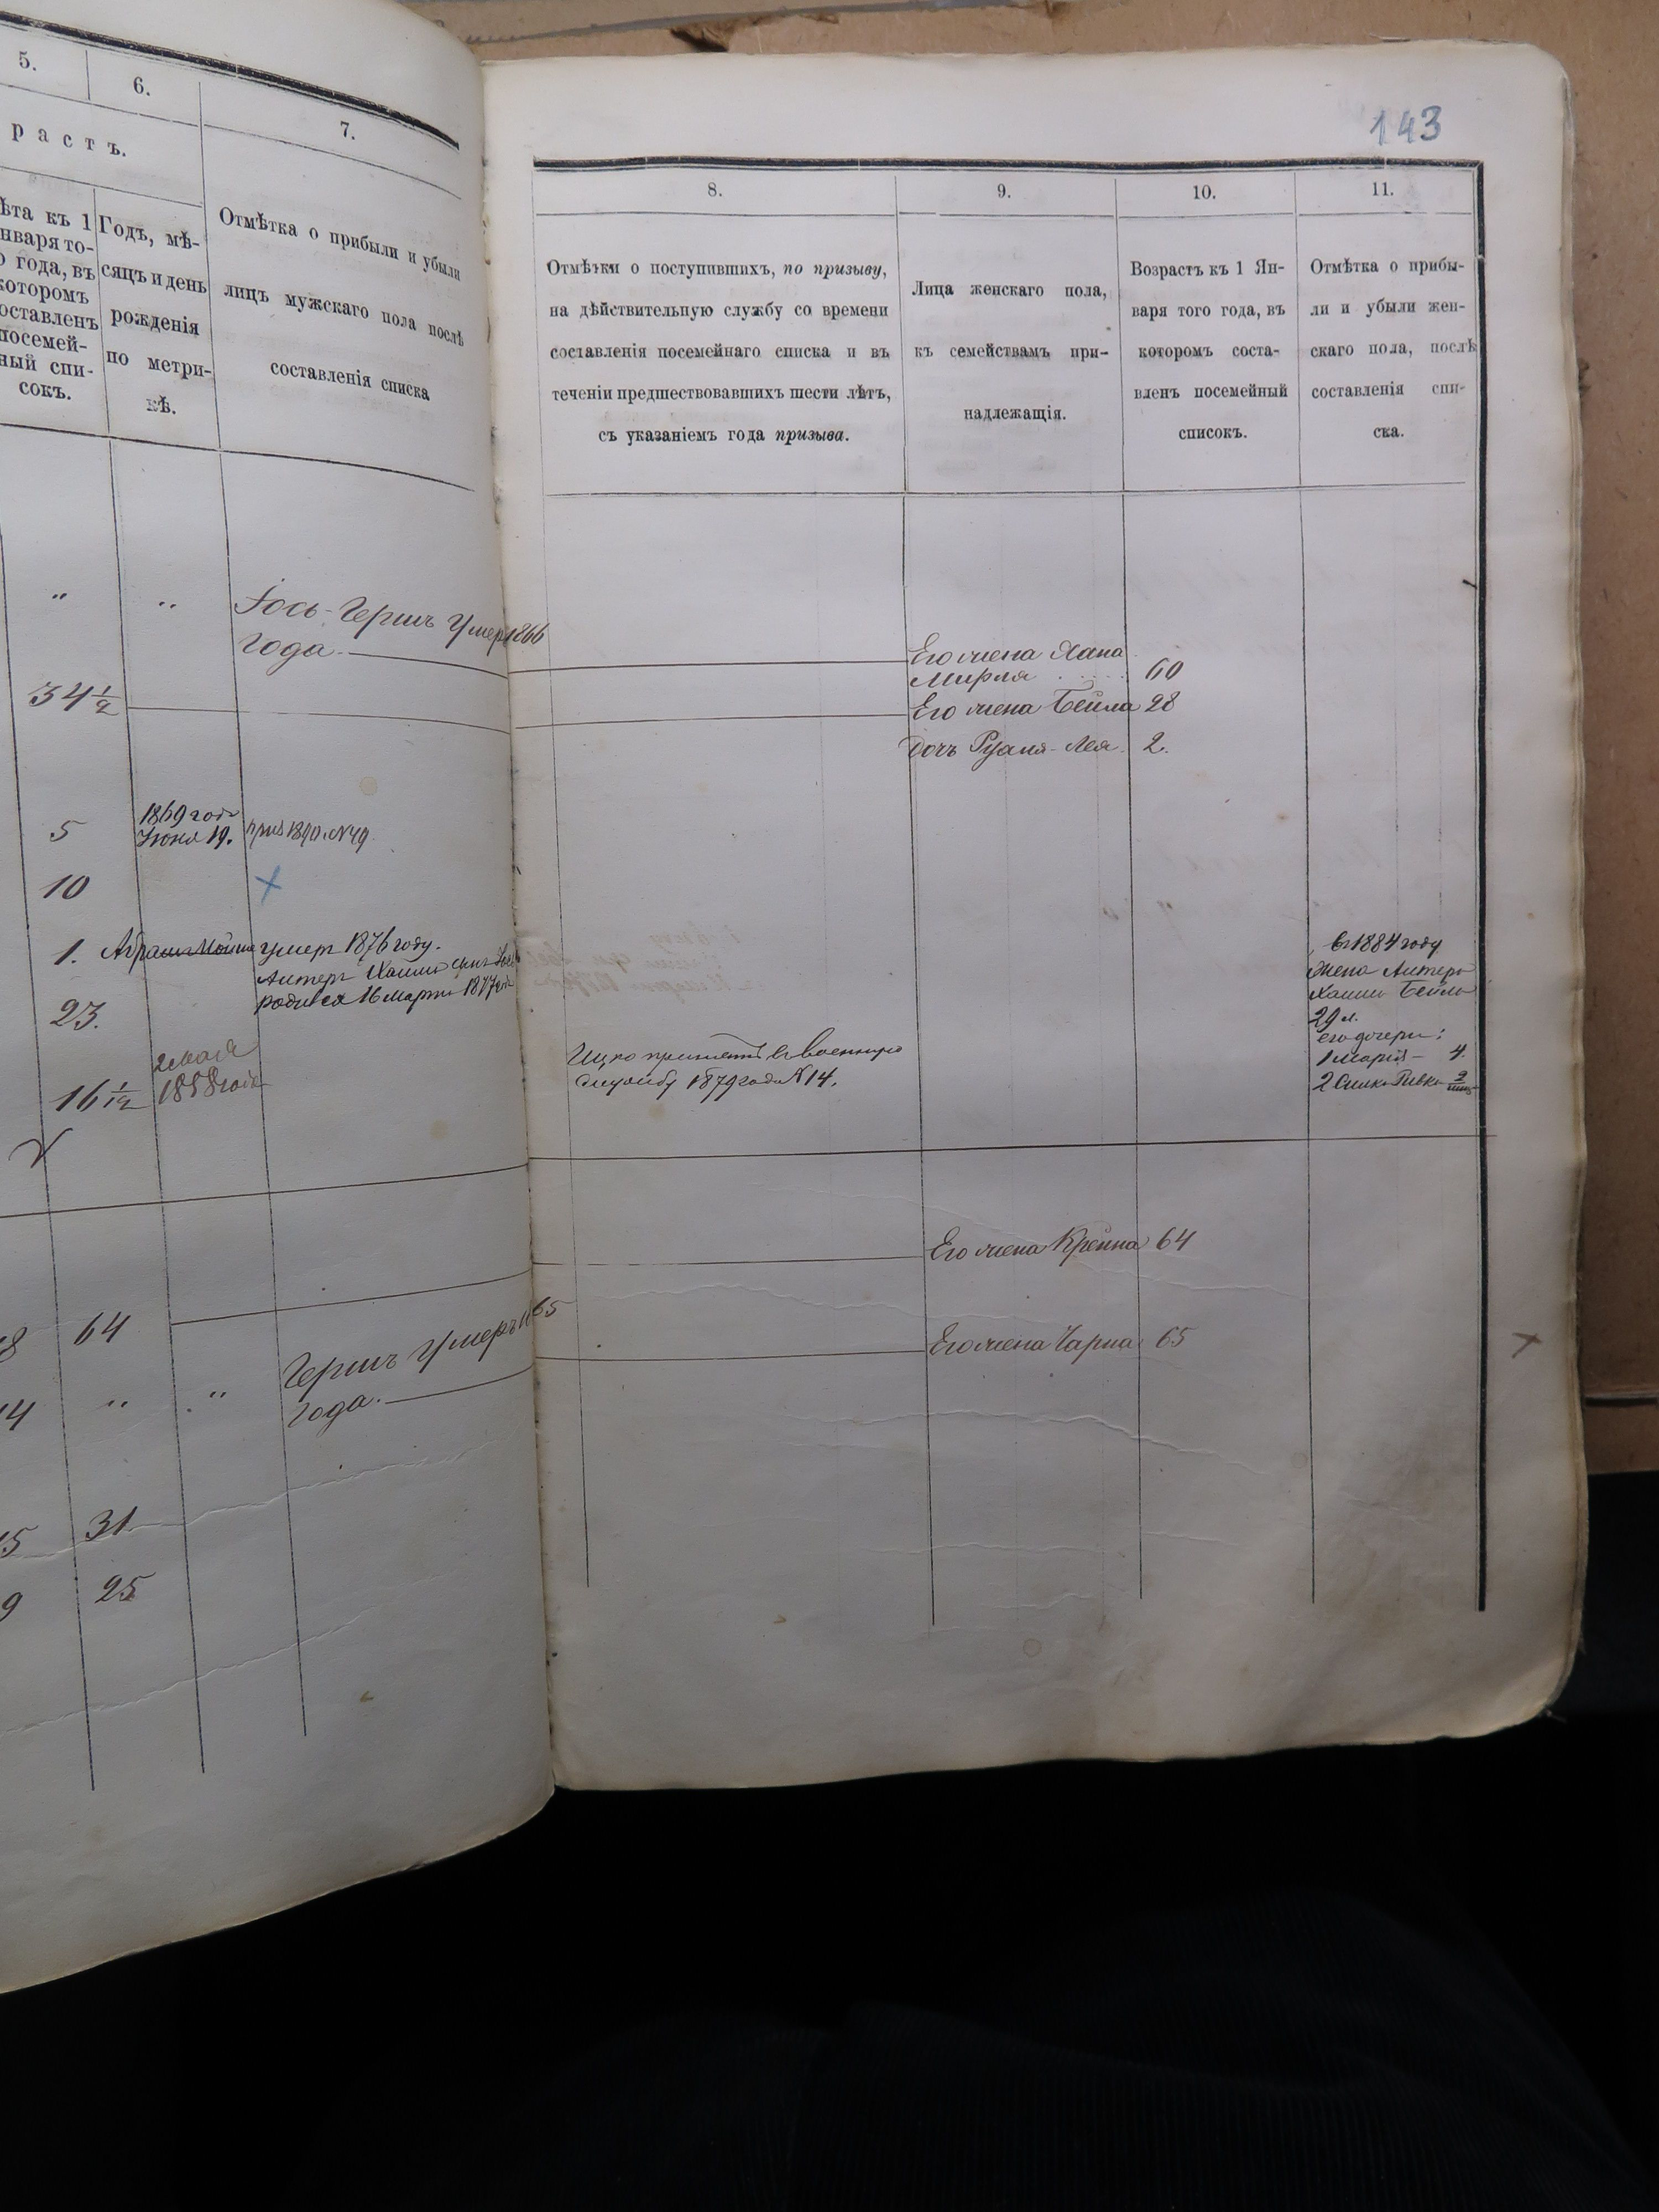 5.
6.
7.
растъ.
ѣта къ 1
нваря то-
о года, въ
которомъ
оставленъ
посемей-
ный спи-
сокъ.
Годъ, мѣ-
сяцъ и день
рожденія
по метри-
кѣ.
Отмѣтка о прибыли и убыли
лицъ мужскаго пола послѣ
составленія списка
" " Іось-Гершъ Умеръ 1866
года.
34 1/2
5 1869 года Іюня 19. приз 1890. №49
10
1. Абрамъ Мошка умеръ 1876 году.
Антеръ Хаимъ сынъ
родился 16 Марта 1877 года
23.
2 мая
16 1/12 1858 года
8 64
Гершъ Умеръ 1865
14 " " года.
15 31
9 25
143
8.
9.
10.
11.
Отмѣтки о поступившихъ, по призыву,
на дѣйствительную службу со времени
составленія посемейнаго списка и въ
теченіи предшествовавшихъ шести лѣтъ,
съ указаніемъ года призыва.
Лица женскаго пола,
къ семействамъ при-
надлежащія.
Возрастъ къ 1 Ян-
варя того года, въ
которомъ соста-
вленъ посемейный
списокъ.
Отмѣтка о прибы-
ли и убыли жен-
скаго пола, послѣ
составленія спи-
ска.
Его жена Хана
Мирля 60
Его жена Бейла 28
дочь Руаня-Лея. 2.
въ 1884 году
Жена Антера
Хаима Бейла
29 л.
его дочери:
1 Марія - 4.
2 Симка Ривка
Ицко принятъ въ военную
службу 1879 года №14.
Его жена Крейна 64
Его жена Чарна 65